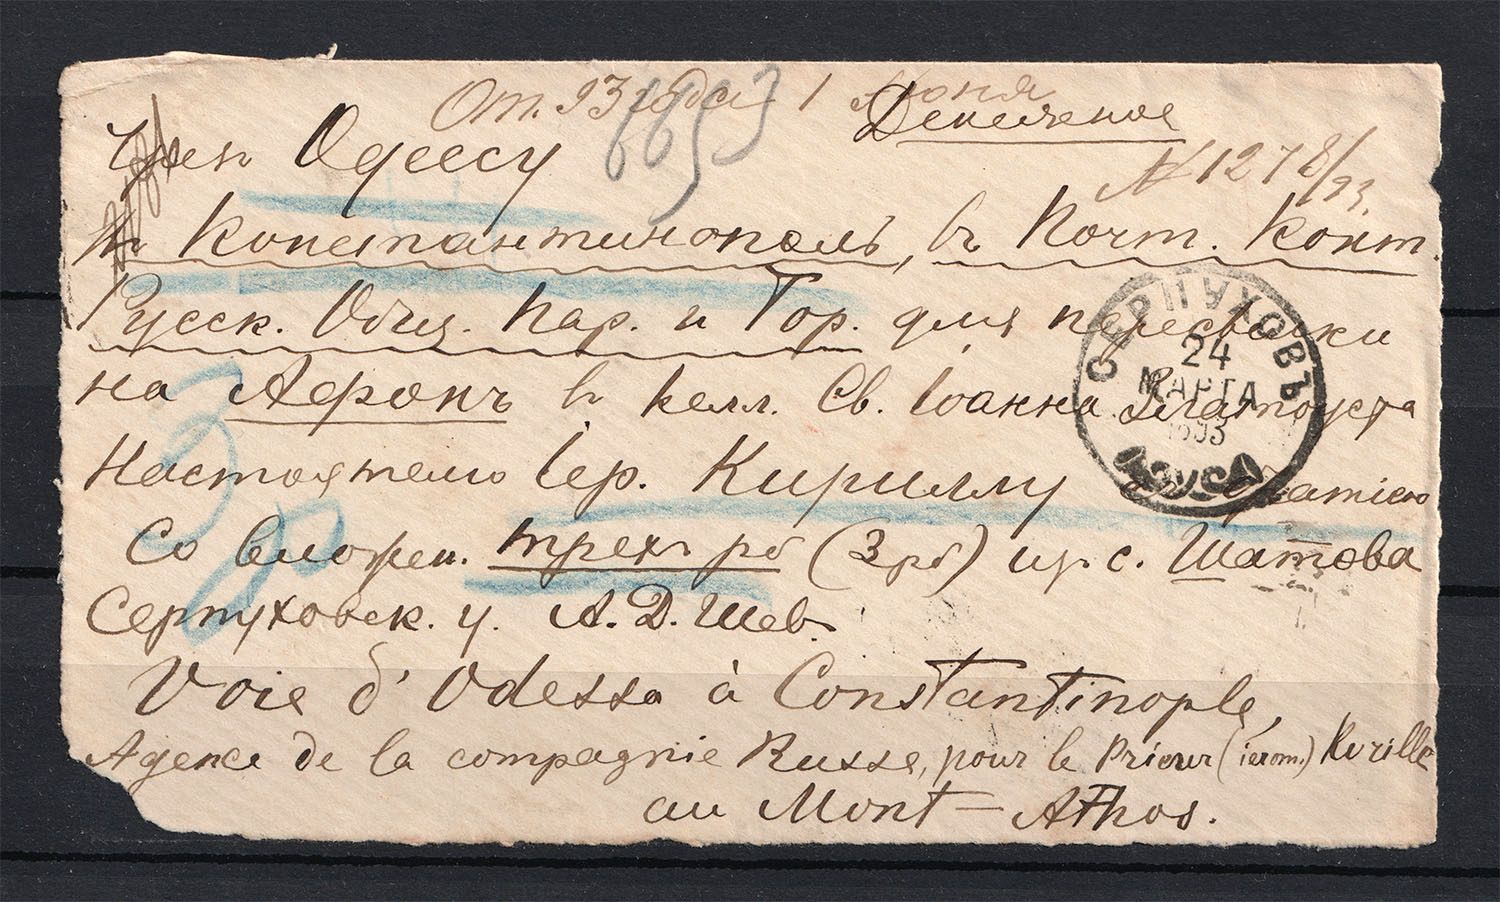 1 Июня
6653
Денежное
№ 1278/93.
Одессу
Константинополь, въ Почт. Конт.
Русск. Общ. Пар. и Тор. для пересылки
на Афонъ въ келл. Св. Іоанна Златоуста
Настоятелю Іер. Кириллу съ братіею
Со вложен. трехъ рб (3 рб) из с. Шатова
Серпуховск. у. А. Д. Шев.
3 р
Voie d'Odessa à Constantinople,
Agence de la compagnie Russe, pour le Prieur (ierom.) Kirille
au Mont-Athos.
СЕРПУХОВЪ
24
МАРТА
1893